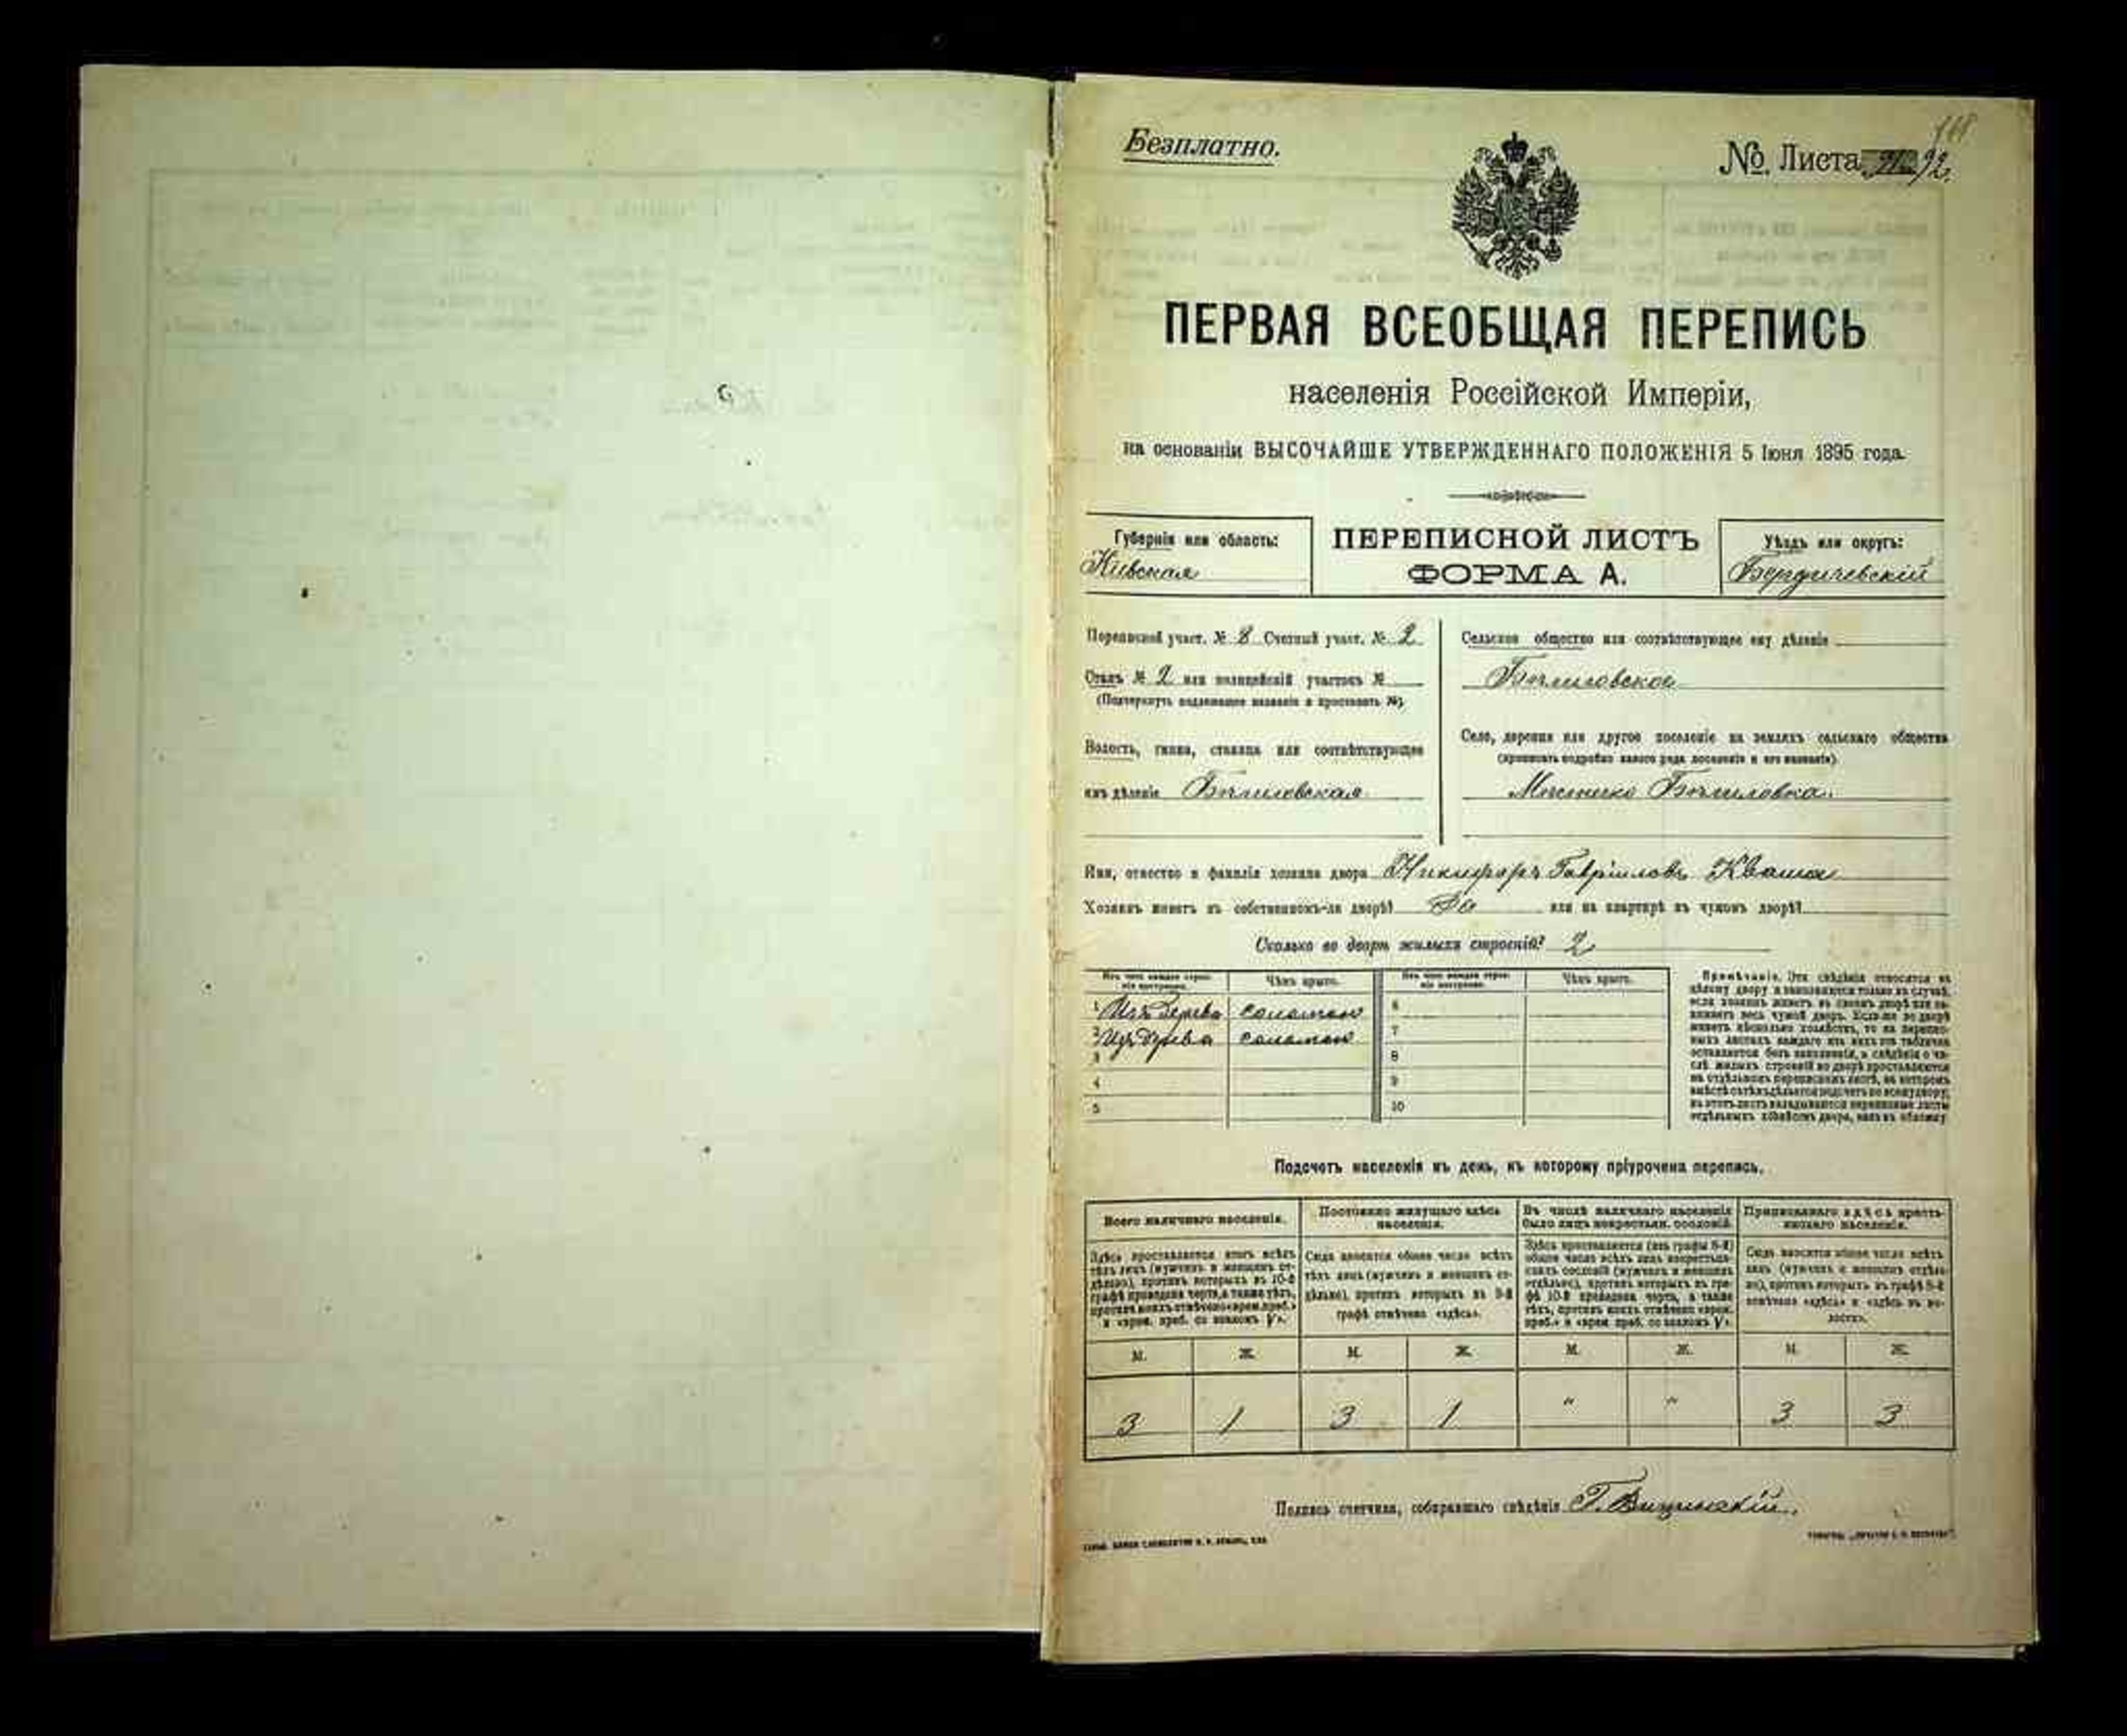 Безплатно.
№. Листа 92.
118
ПЕРВАЯ ВСЕОБЩАЯ ПЕРЕПИСЬ
населенія Россійской Имперіи,
на основаніи ВЫСОЧАЙШЕ УТВЕРЖДЕННАГО ПОЛОЖЕНІЯ 5 Іюня 1895 года.
Губернія или область:
Кіевская
ПЕРЕПИСНОЙ ЛИСТЪ
ФОРМА А.
Уѣздъ или округъ:
Бердичевскій
Переписной участ. № 8 Счетный участ. № 2
Станъ № 2 или полицейскій участокъ №
(Подчеркнуть надлежащее названіе и проставить №).
Волость, гмина, станица или соотвѣтствующее
имъ дѣленіе
Сельское общество или соотвѣтствующее ему дѣленіе
Село, деревня или другое поселеніе на земляхъ сельскаго общества
(прописать подробно какого рода поселеніе и его названіе).
Имя, отчество и фамилія хозяина двора Никифоръ Гавріиловъ Кваша
Хозяинъ живетъ въ собственномъ-ли дворѣ? Да или на квартирѣ въ чужомъ дворѣ?
Сколько во дворѣ жилыхъ строеній? 2
Изъ чего каждое строеніе построено.
Чѣмъ крыто.
Изъ чего каждое строеніе построено.
Чѣмъ крыто.
1 Изъ дерева соломою
2 Изъ дерева соломою
3
4
5
6
7
8
9
10
Примѣчаніе. Эти свѣдѣнія относятся къ
цѣлому двору и заполняются только въ случаѣ,
если хозяинъ живетъ въ своемъ дворѣ или за-
нимаетъ весь чужой дворъ. Если-же во дворѣ
живетъ нѣсколько хозяйствъ, то на перепис-
ныхъ листахъ каждаго изъ нихъ эта табличка
оставляется безъ заполненія, а свѣдѣнія о чи-
слѣ жилыхъ строеній во дворѣ проставляются
на отдѣльномъ переписномъ листѣ, на которомъ
вмѣстѣ съ тѣмъ дѣлается подсчетъ по всему двору;
въ этотъ листъ вкладываются переписные листы
отдѣльныхъ хозяйствъ двора, какъ въ обложку.
Подсчетъ населенія въ день, къ которому пріурочена перепись.
Всего наличнаго населенія.
Постоянно живущаго здѣсь
населенія.
Въ числѣ наличнаго населенія
было лицъ некрестьян. сословій.
Приписаннаго здѣсь кресть-
янскаго населенія.
Здѣсь проставляется итогъ всѣхъ
тѣхъ лицъ (мужчинъ и женщинъ от-
дѣльно), противъ которыхъ въ 10-й
графѣ проведена черта, а также тѣхъ,
противъ коихъ отмѣчено «врем. преб.»
и «врем. преб. со знакомъ V».
Сюда вносится общее число всѣхъ
тѣхъ лицъ (мужчинъ и женщинъ от-
дѣльно), противъ которыхъ въ 9-й
графѣ отмѣчено «здѣсь».
Здѣсь проставляется (изъ графы 8-й)
общее число всѣхъ лицъ некрестьян-
скихъ сословій (мужчинъ и женщинъ
отдѣльно), противъ которыхъ въ гра-
фѣ 10-й проведена черта, а также
тѣхъ, противъ коихъ отмѣчено «врем.
преб.» и «врем. преб. со знакомъ V».
Сюда вносится общее число всѣхъ
лицъ (мужчинъ и женщинъ отдѣль-
но), противъ которыхъ въ графѣ 8-й
отмѣчено «здѣсь» и «здѣсь въ во-
лости».
М. Ж. М. Ж. М. Ж. М. Ж.
3 1 3 1 " " 3 3
Подпись счетчика, собиравшаго свѣдѣнія